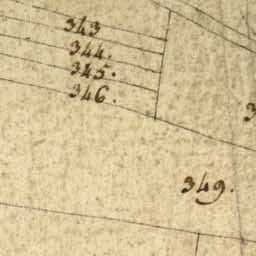 343
344.
345.
346.
349.